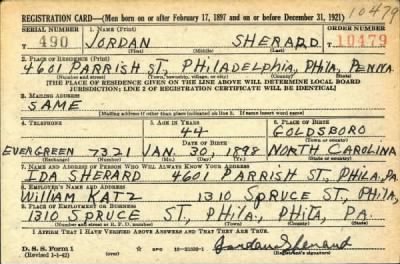 10479
REGISTRATION CARD—(Men born on or after February 17, 1897 and on or before December 31, 1921)
SERIAL NUMBER 1. NAME (Print) ORDER NUMBER
490 JORDAN SHERARD 10479
(First) (Middle) (Last)
2. PLACE OF RESIDENCE (Print)
4601 PARRISH ST, PHILADELPHIA, PHILA, PENNA
(Number and street) (Town, township, village, or city) (County) (State)
[THE PLACE OF RESIDENCE GIVEN ON THE LINE ABOVE WILL DETERMINE LOCAL BOARD
JURISDICTION; LINE 2 OF REGISTRATION CERTIFICATE WILL BE IDENTICAL]
3. MAILING ADDRESS
SAME
[Mailing address if other than place indicated on line 2. If same insert word same]
4. TELEPHONE 5. AGE IN YEARS 6. PLACE OF BIRTH
44 GOLDSBORO
DATE OF BIRTH (Town or county)
EVERGREEN 7321 JAN. 30, 1898 NORTH CAROLINA
(Exchange) (Number) (Mo.) (Day) (Yr.) (State or country)
7. NAME AND ADDRESS OF PERSON WHO WILL ALWAYS KNOW YOUR ADDRESS
IDA SHERARD 4601 PARRISH ST., PHILA, PA
8. EMPLOYER'S NAME AND ADDRESS
WILLIAM KATZ 1310 SPRUCE ST, PHILA,
9. PLACE OF EMPLOYMENT OR BUSINESS
1310 SPRUCE ST., PHILA., PHILA, PA.
(Number and street or R. F. D. number) (Town) (County) (State)
I AFFIRM THAT I HAVE VERIFIED ABOVE ANSWERS AND THAT THEY ARE TRUE.
D. S. S. Form 1
(Revised 1-1-42) (over) Jordan Sherard
(Registrant's signature)